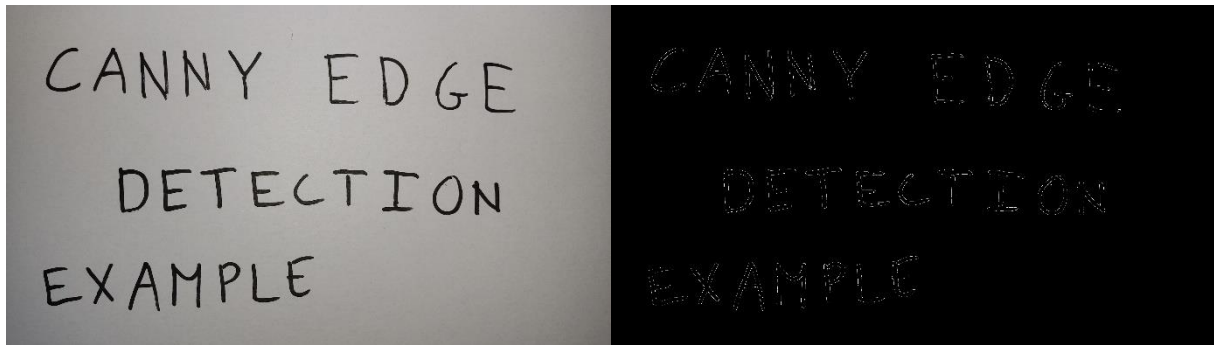 CANNY EDGE
DETECTION
EXAMPLE
CANNY EDGE
DETECTION
EXAMPLE